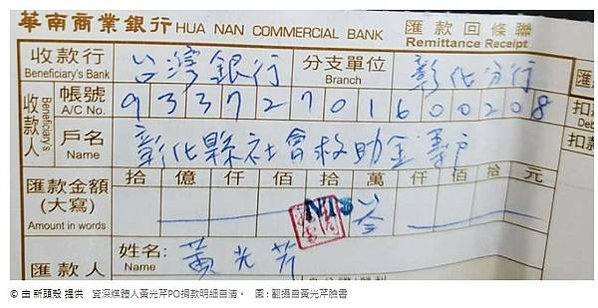 華南商業銀行 HUA NAN COMMERCIAL BANK 匯款回條聯
Remittance Receipt
收款行 台灣銀行 分支單位 彰化分行
Beneficiary's Bank Branch
收款人 Beneficiary's
帳號 A/C No. 933727016002 08
戶名 彰化縣社會救助金專戶
Name
匯款金額 拾 億 仟 佰 拾 萬 仟 佰 拾 元
(大寫) NT$
Amount in words
匯款人 姓名: 黃光芹
Name
匯
扣
Deb
扣款
© 由 新頭殼 提供 資深媒體人黃光芹PO捐款明細自清。 圖:翻攝自黃光芹臉書